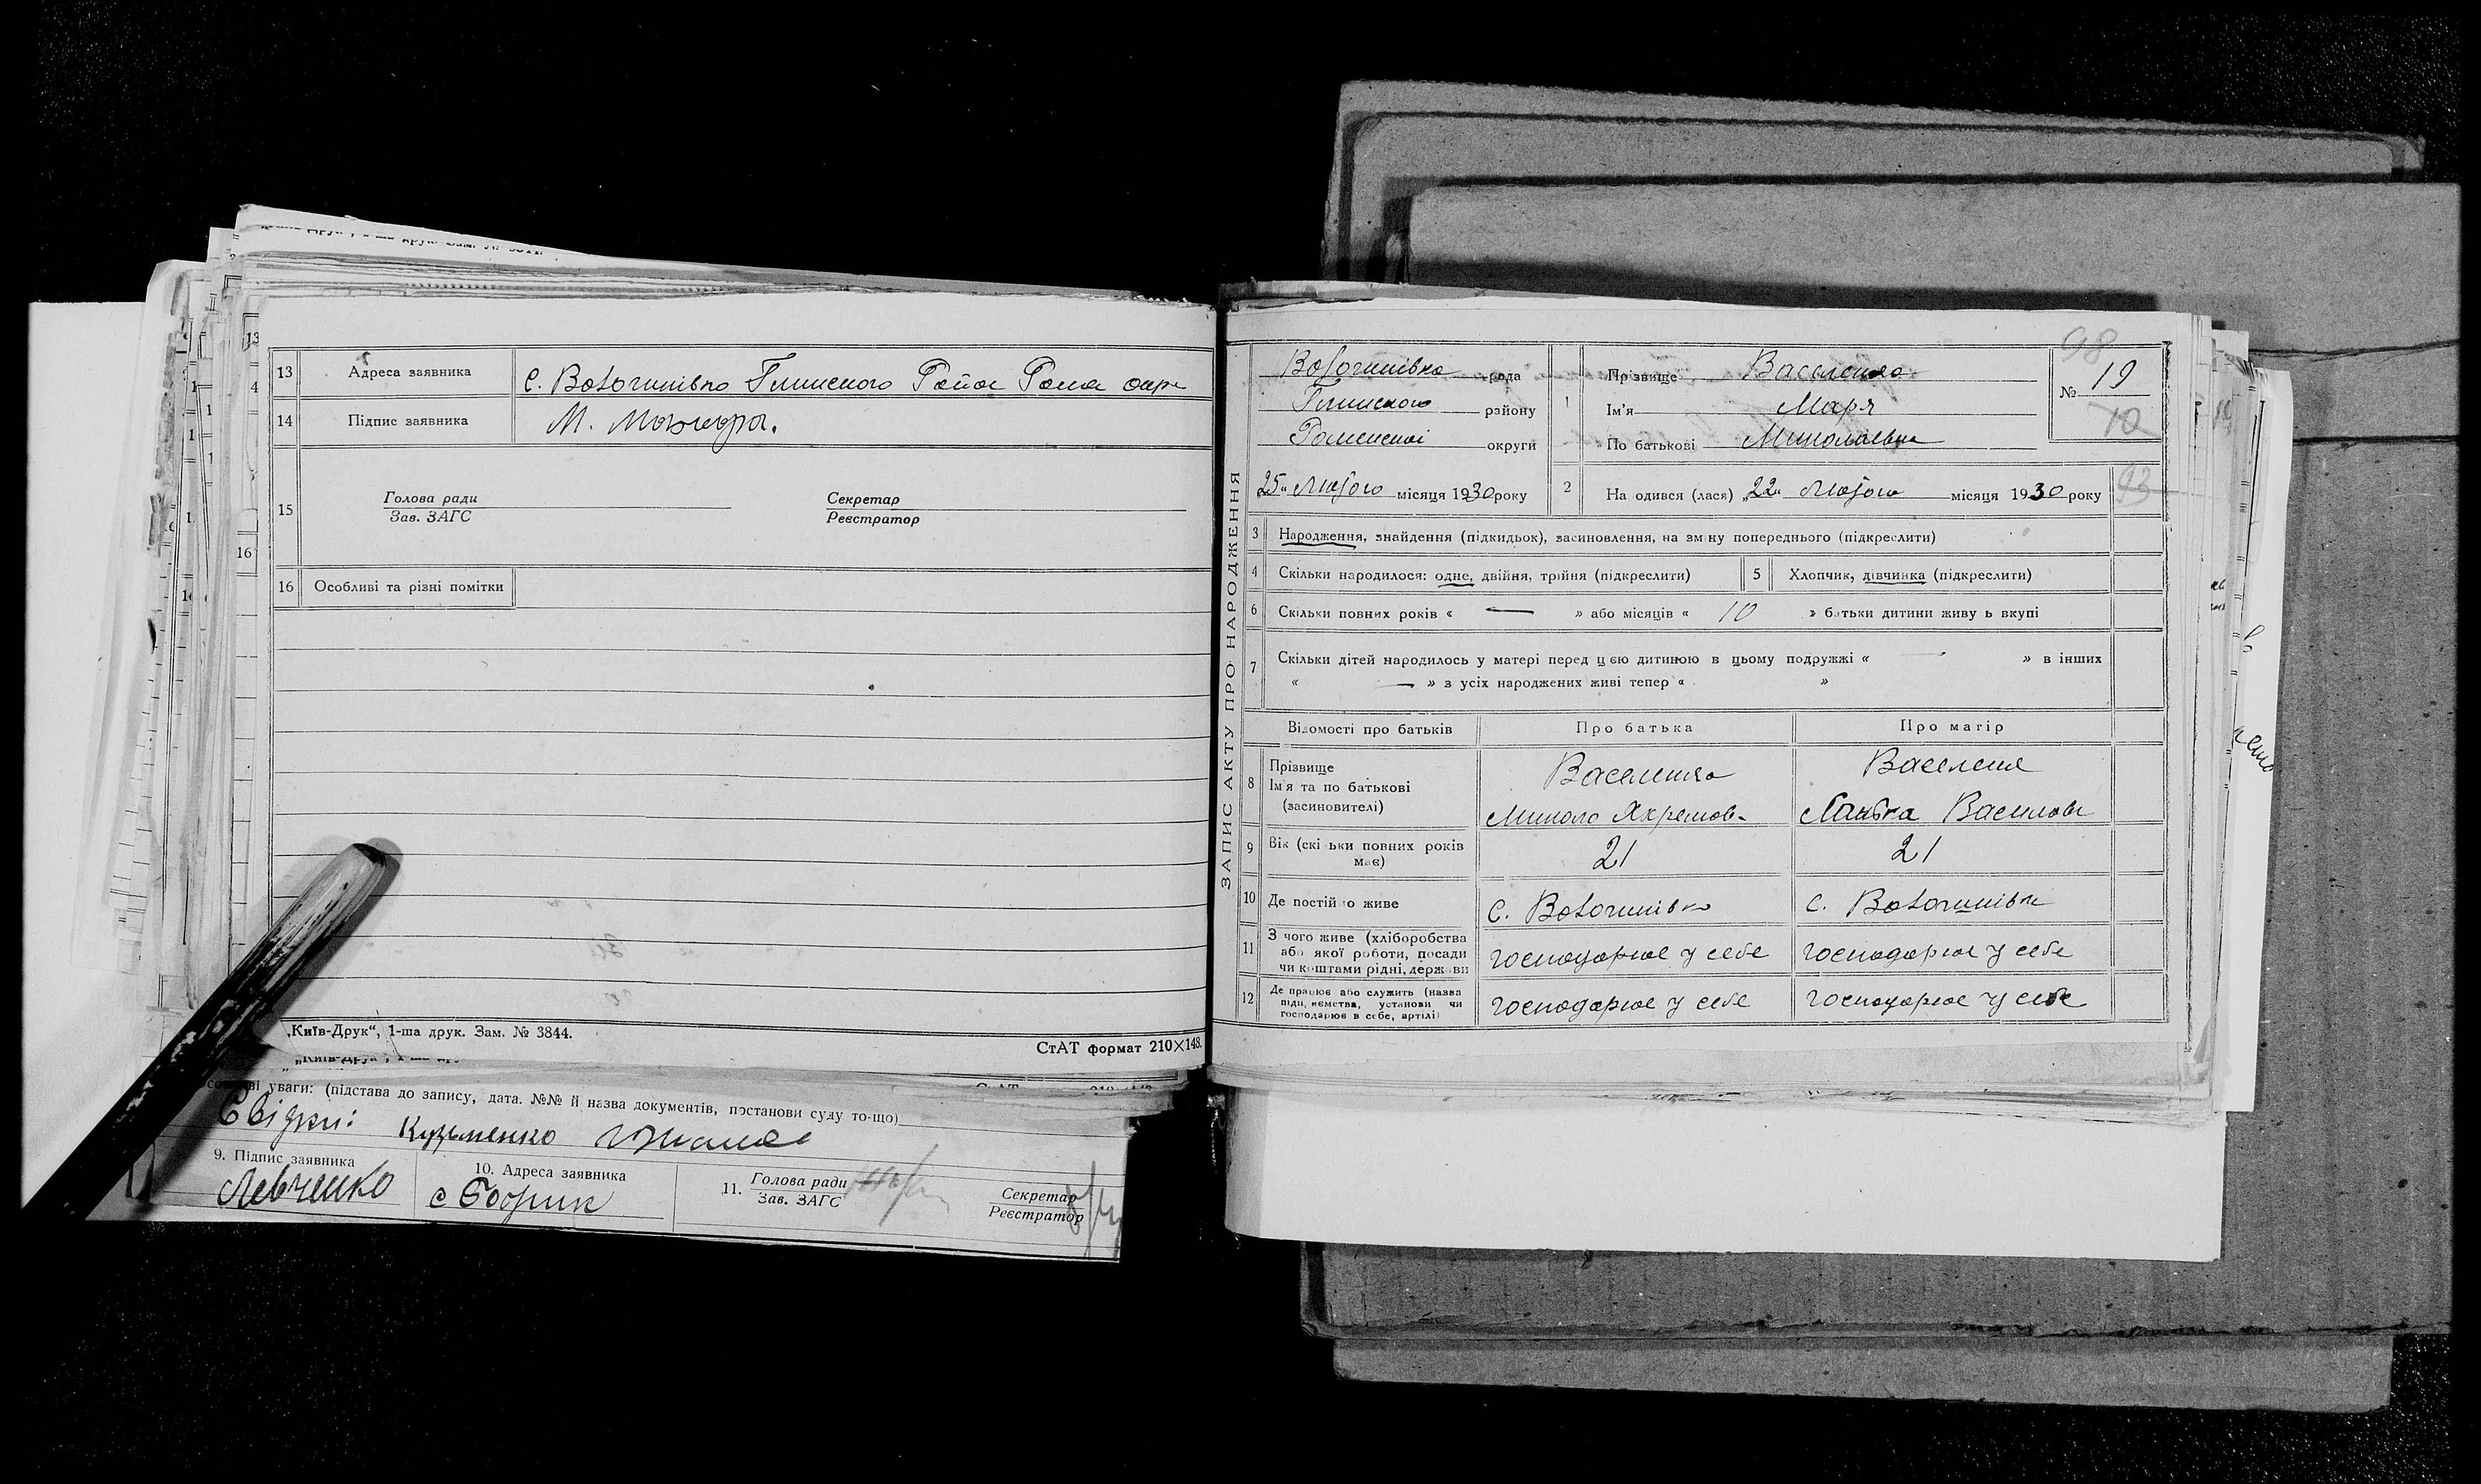 13 Адреса заявника с. Волошнівка Глинського Район Роменс окр
14 Підпис заявника М.
15 Голова ради Секретар
Зав. ЗАГС Реєстратор
16 Особливі та різні помітки
„Київ-Друк“, 1-ша друк. Зам. № 3844.
СтАТ формат 210×148.
уваги: (підстава до запису, дата. №№ й назва документів, постанови суду то-що)
Свідки: Кузьменко
9. Підпис заявника
Левченко
10. Адреса заявника
с Бобрик
11. Голова ради Секретар
Зав. ЗАГС Реєстратор
ЗАПИС АКТУ ПРО НАРОДЖЕННЯ
98
Волошнівка рада
Глинського району
Роменської округи
25 „ Лютого місяця 1930 року
1 Прізвище Василенко
Ім'я Марія
По батькові Миколаєвна
№ 19
10
2 На одився (лася) „22“ Лютого місяця 1930 року
93
3 Народження, знайдення (підкидьок), засиновлення, на зміну попереднього (підкреслити)
4 Скільки народилося: одне, двійня, трійня (підкреслити) 5 Хлопчик, дівчинка (підкреслити)
6 Скільки повних років « — » або місяців « 10 » батьки дитини живу ь вкупі
7 Скільки дітей народилось у матері перед цією дитиною в цьому подружжі « — » в інших
« — » з усіх народжених живі тепер « »
Відомості про батьків Про батька Про матір
8 Прізвище
Ім'я та по батькові
(засиновителі)
Василенко
Микола Яхремов-
Василенк
Ганька Василовн
9 Вік (скі ьки повних років має) 21 21
10 Де постійно живе с. Волошнівка с. Волошнівка
11 З чого живе (хліборобства
або якої роботи, посади
чи коштами рідні, держави
господарює у себе господарює у себе
12 Де працює або служить (назва
підприємства, установи чи
господарює в себе, артілі)
господарює у себе господарює у себе